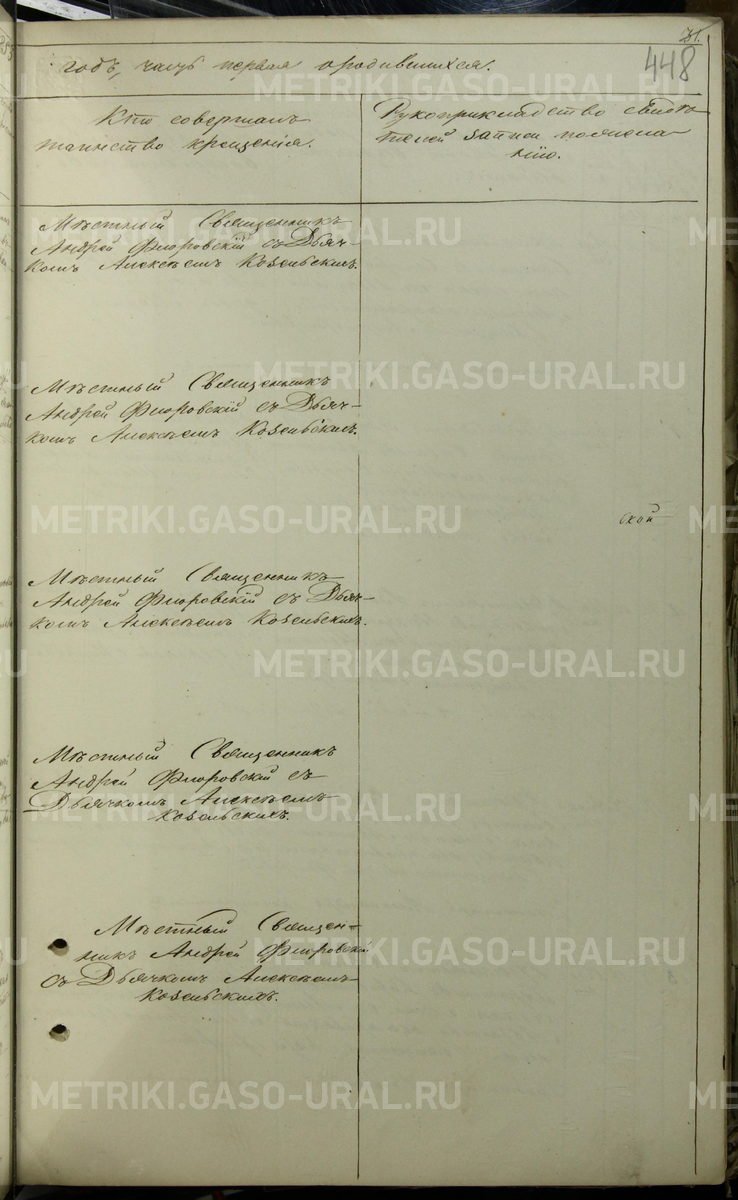 31.
448
годъ, часть первая о родившихся.
Кто совершалъ
таинство крещенія.
Рукоприкладство свидѣ-
телей записи по желa-
нію.
Мѣстный Священникъ
Андрей Флоровскій съ Дьяч-
комъ Алексѣемъ Козельскихъ.
Мѣстный Священникъ
Андрей Флоровскій съ Дьяч-
комъ Алексѣемъ Козельскихъ.
ской
Мѣстный Священникъ
Андрей Флоровскій съ Дьяч-
комъ Алексѣемъ Козельскихъ.
Мѣстный Священникъ
Андрей Флоровскій съ
Дьячкомъ Алексѣемъ
Козельскихъ.
Мѣстный Священ-
никъ Андрей Флоровскій
съ Дьячкомъ Алексѣемъ
Козельскихъ.
METRIKI.GASO-URAL.RU